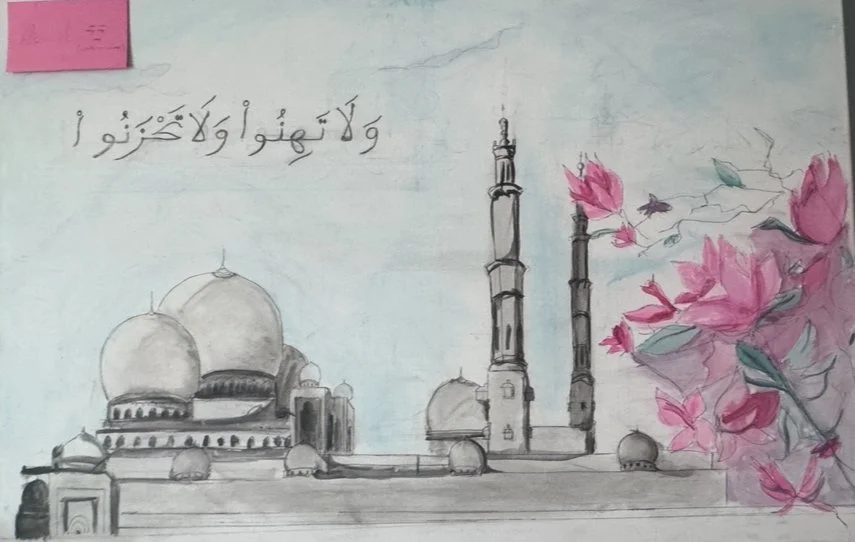 وَلَا تَهِنُواْ وَلَا تَحْزَنُواْ